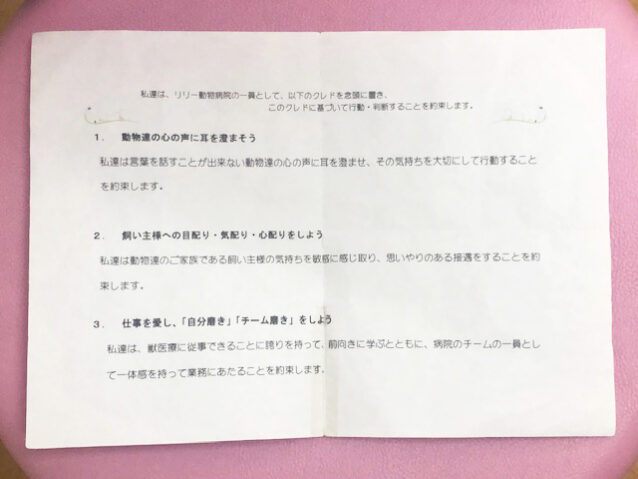 私達は、リリー動物病院の一員として、以下のクレドを念頭に置き、
このクレドに基づいて行動・判断することを約束します。
1. 動物達の心の声に耳を澄まそう
私達は言葉を話すことが出来ない動物達の心の声に耳を澄ませ、その気持ちを大切にして行動すること
を約束します。
2. 飼い主様への目配り・気配り・心配りをしよう
私達は動物達のご家族である飼い主様の気持ちを敏感に感じ取り、思いやりのある接遇をすることを約
束します。
3. 仕事を愛し、「自分磨き」「チーム磨き」をしよう
私達は、獣医療に従事できることに誇りを持って、前向きに学ぶとともに、病院のチームの一員とし
て一体感を持って業務にあたることを約束します。